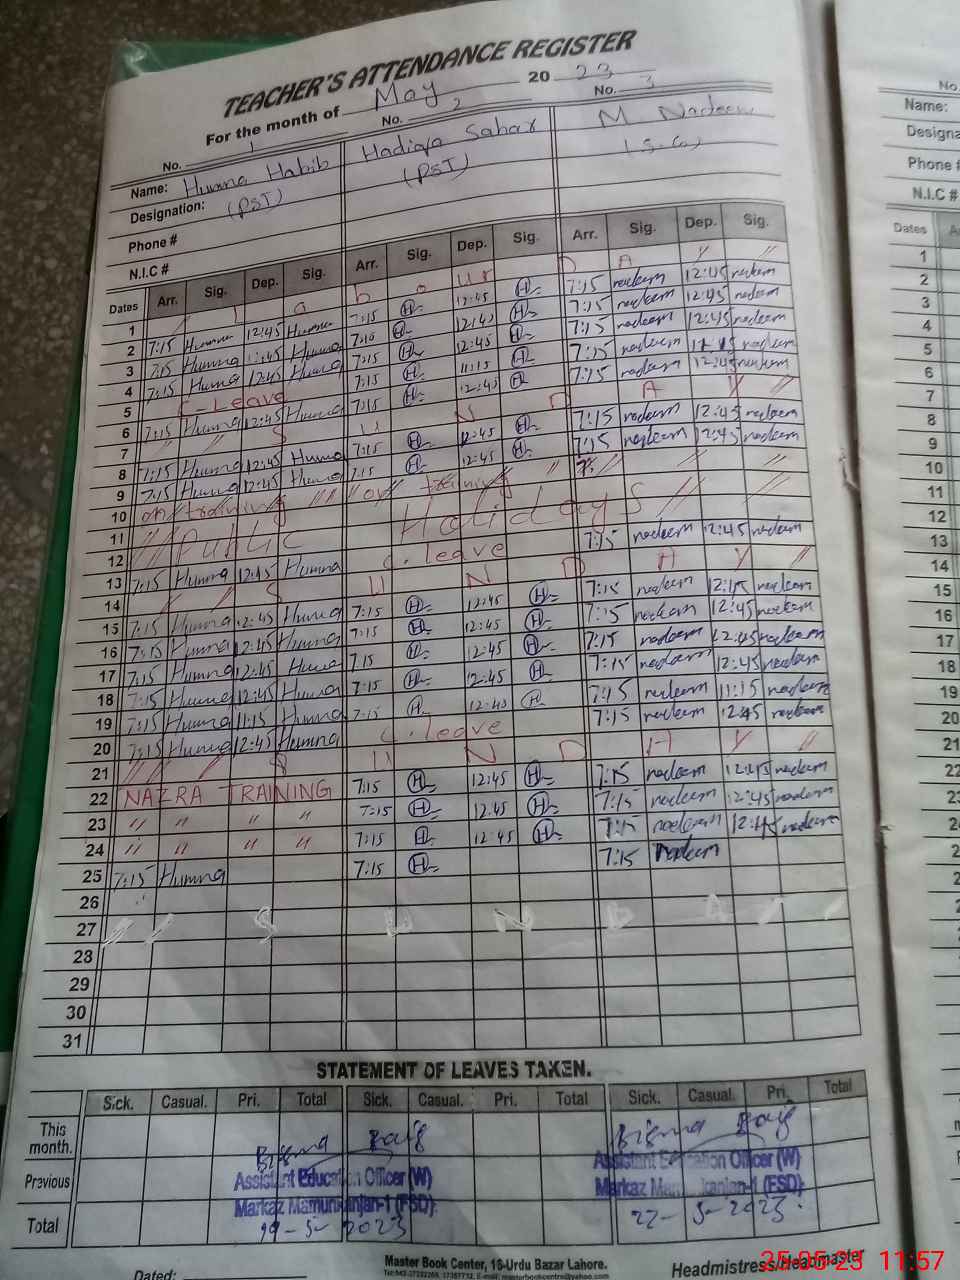 TEACHER'S ATTENDANCE REGISTER
For the month of May 2023
No. 1 No. 2 No. 3
Name: Humna Habib Hadiqa Sahar M Nadeem
Designation: (PST) (PST)
Phone #
N.I.C #
Dates Arr. Sig. Dep. Sig. Arr. Sig. Dep. Sig. Arr. Sig. Dep. Sig.
1 l a b o u r D A " "
2 7:15 Humna 12:45 Humna 7:15 H 12:45 H 7:15 nadeem 12:45 nadeem
3 7:15 Humna 12:45 Humna H 12:45 H 7:15 nadeem 12:45 nadeem
4 7:15 Humna 12:45 Humna 7:15 H 12:45 H 7:15 nadeem 12:45 nadeem
5 C-Leave 7:15 H 11:15 H 7:15 nadeem 11:15 nadeem
6 7:15 Humna 12:45 Humna 7:15 H 12:45 H 7:15 nadeem 12:45 nadeem
7 " " S U N D A Y "
8 7:15 Humna 12:45 Humna 7:15 H 12:45 H 7:15 nadeem 12:45 nadeem
9 7:15 Humna 12:45 Humna 7:15 H 12:45 H 7:15 nadeem 12:45 nadeem
10 on training " " on training " "
11 " Public Holidays " "
12
13 7:15 Humna 12:45 Humna C. leave 7:15 nadeem 12:45 nadeem
14 " " S U N D A Y "
15 7:15 Humna 12:45 Humna 7:15 H 12:45 H 7:15 nadeem 12:45 nadeem
16 7:15 Humna 12:45 Humna 7:15 H 12:45 H 7:15 nadeem 12:45 nadeem
17 7:15 Humna 12:45 Humna 7:15 H 12:45 H 7:15 nadeem 12:45 nadeem
18 7:15 Humna 12:45 Humna 7:15 H 12:45 H 7:15 nadeem 12:45 nadeem
19 7:15 Humna 11:15 Humna 7:15 H H 7:15 nadeem 11:15 nadeem
20 7:15 Humna 12:45 Humna C. leave 7:15 nadeem 12:45 nadeem
21 " " S U N D A Y "
22 NAZRA TRAINING 7:15 H 12:45 H 7:15 nadeem 12:45 nadeem
23 " " " " 7:15 H 12:45 H 7:15 nadeem 12:45 nadeem
24 " " " " 7:15 H 12:45 H 7:15 nadeem 12:45 nadeem
25 7:15 Humna 7:15 H 7:15 nadeem
26
27 S U N D A
28
29
30
31
STATEMENT OF LEAVES TAKEN.
Sick. Casual. Pri. Total Sick. Casual. Pri. Total Sick. Casual. Pri. Total
This month.
Previous
Total
Bisma Baig
Assistant Education Officer (W)
Markaz Mamunkanjan-1 (FSD)
19-5-2023
Bisma Baig
Assistant Education Officer (W)
Markaz Mamunkanjan-1 (FSD)
22-5-2023.
Dated:
Master Book Center, 16-Urdu Bazar Lahore.
Headmistress/Headmaster
No.
Name:
Designa
Phone #
N.I.C #
Dates
1
2
3
4
5
6
7
8
9
10
11
12
13
14
15
16
17
18
19
20
21
22
23
24
25-05-23 11:57